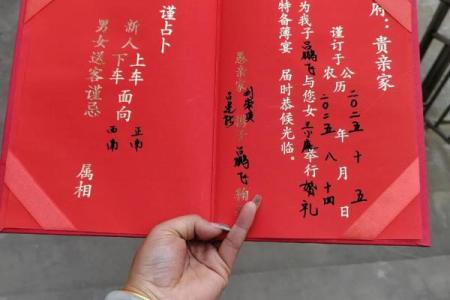 府：贵亲家
谨订于公历二〇二五年十月五日
农历二〇二五 八 十四
为我子吕鹏飞与您女王小举行婚礼
特备薄宴 届时恭候光临。
愚亲家 携子 鹏飞 鞠
谨占卜
新人上车 面向 正南
下车 西南
男女送客谨忌 属相